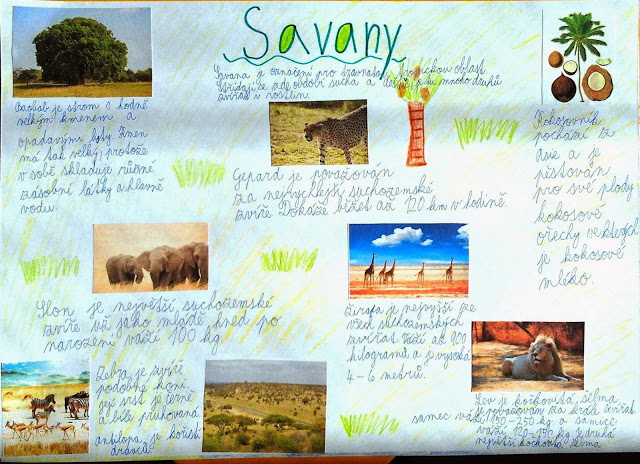 Savany
Savana je označení pro travnatou tropickou oblast
Střídají se zde období sucha a dešťů, žije tu mnoho druhů
zvířat i rostlin.
Baobab je strom s hodně
velkým kmenem a
opadavými listy. Kmen
má tak velký, protože
v sobě skladuje různé
zásobní látky a hlavně
vodu.
Gepard je považován
za nejrychlejší suchozemské
zvíře. Dokáže běžet až 120 km v hodině.
Kokosovník
pochází z
Asie a je
pěstován
pro své plody
kokosové
ořechy ve kterých
je kokosové
mléko.
Slon je největší suchozemské
zvíře už jako mládě hned po
narození váží 100 kg.
Žirafa je nejvyšší ze
všech suchozemských
zvířat. Váží až 900
kilogramů a je vysoká
4-6 metrů.
Zebra je zvíře
podobné koni.
její srst je černě
a bíle pruhovaná.
antilopa je kořistí
dravců.
Lev je kočkovitá šelma
je považován za krále zvířat
samec váží 150-250 kg a samice
váží 120-150 kg je druhá
největší kočkovitá šelma